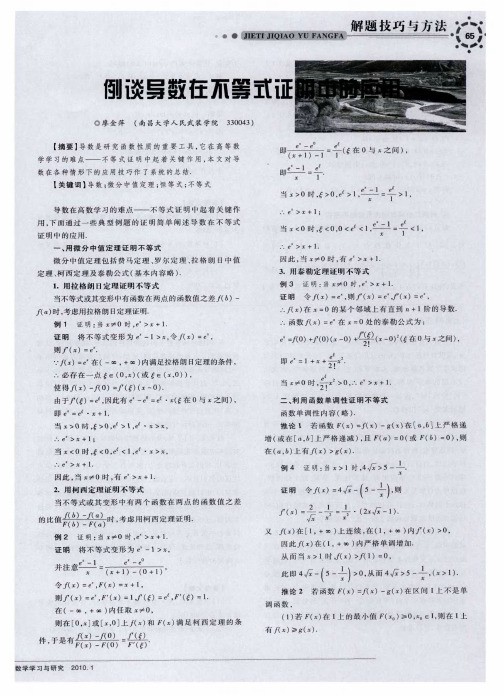 解题技巧与方法
JIETI JIQIAO YU FANGFA
65
例谈导数在不等式证明中的应用
◎廖金萍 (南昌大学人民武装学院 330043)
【摘要】导数是研究函数性质的重要工具,它在高等数
学学习的难点——不等式证明中起着关键作用,本文对导
数在各种情形下的应用技巧作了系统的总结.
【关键词】导数;微分中值定理;恒等式;不等式
导数在高数学习的难点——不等式证明中起着关键作
用,下面通过一些典型例题的证明简单阐述导数在不等式
证明中的应用.
一、用微分中值定理证明不等式
微分中值定理包括费马定理、罗尔定理、拉格朗日中值
定理、柯西定理及泰勒公式(基本内容略).
1. 用拉格朗日定理证明不等式
当不等式或其变形中有函数在两点的函数值之差f(b)-
f(a)时,考虑用拉格朗日定理证明.
例1 证明:当x≠0时,e^x>x+1.
证明 将不等式变形为 e^x-1>x,令f(x)=e^x,
则f'(x)=e^x.
∵f(x)=e^x在(-∞,+∞)内满足拉格朗日定理的条件,
∴必存在一点ξ∈(0,x)(或ξ∈(x,0)),
使得f(x)-f(0)=f'(ξ)(x-0).
由于f'(ξ)=e^ξ,因此有e^x-e^0=e^ξ·x(ξ在0与x之间),
即e^x=e^ξ·x+1.
当x>0时,ξ>0,e^ξ>1,e^ξ·x>x,
∴e^x>x+1;
当x<0时,ξ<0,e^ξ<1,e^ξ·x>x,
∴e^x>x+1.
因此,当x≠0时,有e^x>x+1.
2. 用柯西定理证明不等式
当不等式或其变形中有两个函数在两点的函数值之差
的比值(f(b)-f(a))/(F(b)-F(a))时,考虑用柯西定理证明.
例2 证明:当x≠0时,e^x>x+1.
证明 将不等式变形为 e^x-1>x,
并注意(e^x-1)/x=(e^x-e^0)/((x+1)-(0+1)),
令f(x)=e^x,F(x)=x+1,
则f'(x)=e^x,F'(x)=1,f'(ξ)=e^ξ,F'(ξ)=1.
在(-∞,+∞)内任取x≠0,
则在[0,x]或[x,0]上f(x)和F(x)满足柯西定理的条
件,于是有(f(x)-f(0))/(F(x)-F(0))=f'(ξ)/F'(ξ)
即(e^x-e^0)/((x+1)-1)=e^ξ/1(ξ在0与x之间),
即(e^x-1)/x=e^ξ/1.
当x>0时,ξ>0,e^ξ>1,(e^x-1)/x=e^ξ/1>1,
∴e^x>x+1;
当x<0时,ξ<0,0<e^ξ<1,(e^x-1)/x=e^ξ/1<1,
∴e^x>x+1.
因此,当x≠0时,有e^x>x+1.
3. 用泰勒定理证明不等式
例3 证明:当x≠0时,e^x>x+1.
证明 令f(x)=e^x,则f'(x)=e^x,f''(x)=e^x,
∴f(x)在x=0的某个邻域上有直到n+1阶的导数.
∴函数f(x)=e^x在x=0处的泰勒公式为:
e^x=f(0)+f'(0)(x-0)+f''(ξ)/2!(x-0)²(ξ在0与x之间),
即e^x=1+x+e^ξ/2!x².
当x≠0时,e^ξ/2!x²>0,∴e^x>x+1.
二、利用函数单调性证明不等式
函数单调性内容(略).
推论1 若函数F(x)=f(x)-g(x)在[a,b]上严格递
增(或在[a,b]上严格递减),且F(a)=0(或F(b)=0),则
在(a,b)上有f(x)>g(x).
例4 证明:当x>1时,4√x>5-1/x.
证明 令f(x)=4√x-(5-1/x),则
f'(x)=2/√x-1/x²=1/x²·(2x√x-1).
又 f(x)在[1,+∞)上连续,在(1,+∞)内f'(x)>0,
因此f(x)在[1,+∞)内严格单调增加.
从而当x>1时,f(x)>f(1)=0,
此即4√x-(5-1/x)>0,从而4√x>5-1/x,(x>1).
推论2 若函数F(x)=f(x)-g(x)在区间I上不是单
调函数,
(1)若F(x)在I上的最小值F(x₀)≥0,x₀∈I,则在I上
有f(x)≥g(x).
数学学习与研究 2010.1